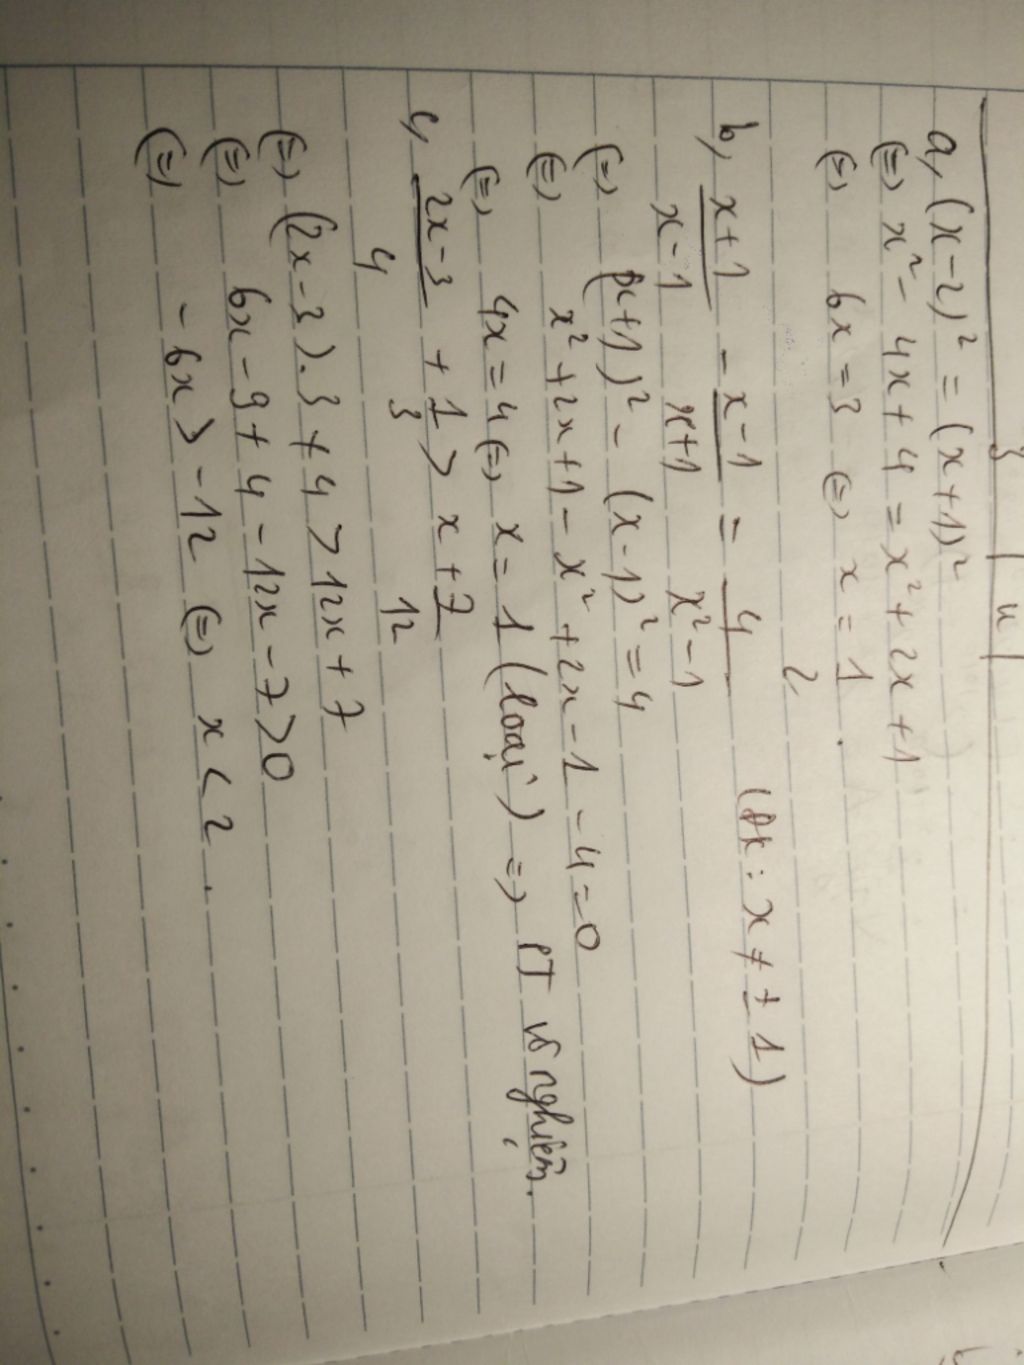 a, (x-2)² = (x+1)²
(=) x² - 4x + 4 = x² + 2x + 1
(=) 6x = 3 (=) x = 1/2.
b, (x+1)/(x-1) - (x-1)/(x+1) = 4/(x²-1) (ĐK: x ≠ ±1)
(=) (x+1)² - (x-1)² = 4
(=) x² + 2x + 1 - x² + 2x - 1 - 4 = 0
(=) 4x = 4 (=) x = 1 (loại) => PT vô nghiệm.
c, (2x-3)/4 + 1/3 > x + 7/12
(=) (2x-3).3 + 4 > 12x + 7
(=) 6x - 9 + 4 - 12x - 7 > 0
(=) - 6x > -12 (=) x < 2.